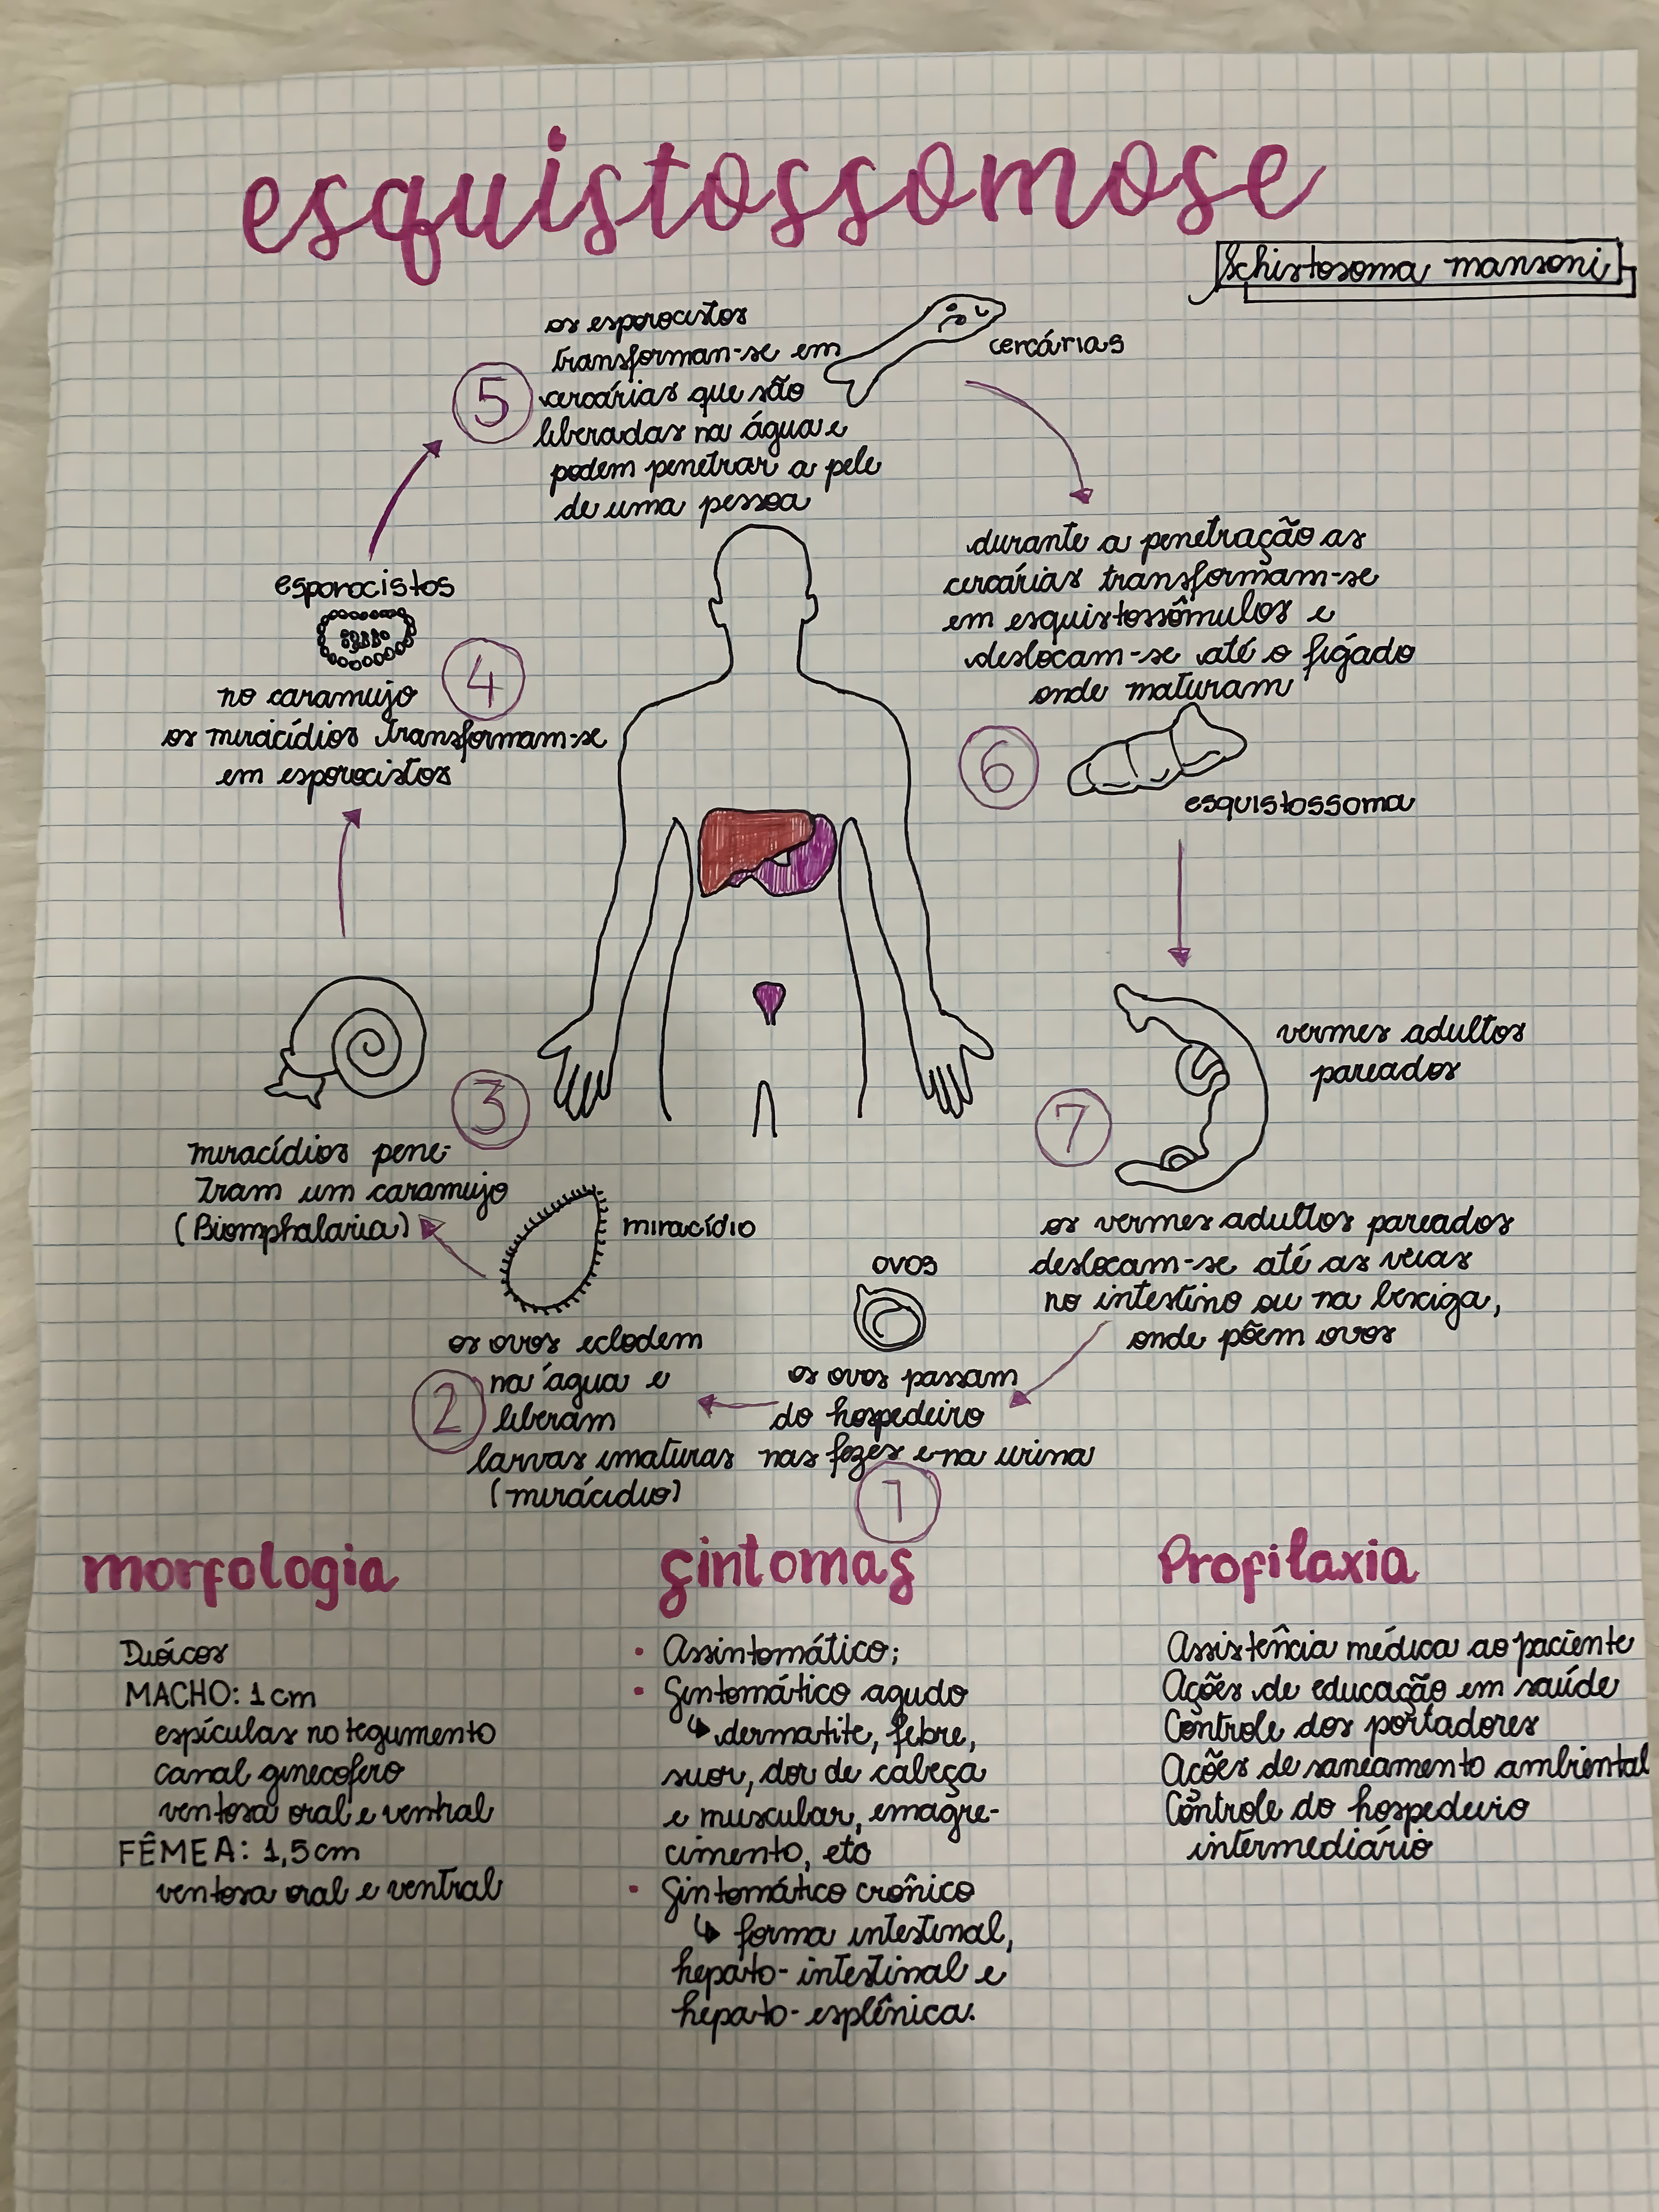 esquistossomose
Schistosoma mansoni
os esporocistos
transforman-se em
cercárias que são
liberadas na água e
podem penetrar a pele
de uma pessoa
5
cercárias
durante a penetração as
cercárias transformam-se
em esquistossômulos e
deslocam-se até o fígado
onde maturam
6
esquistossoma
esporocistos
4
no caramujo
os miracídios transformam-se
em esporocistos
vermes adultos
pareados
7
os vermes adultos pareados
deslocam-se até as veias
no intestino ou na bexiga,
onde põem ovos
3
miracídios pene-
tram um caramujo
(Biomphalaria)
miracídio
ovos
os ovos passam
do hospedeiro
nas fezes e na urina
1
os ovos eclodem
na água e
liberam
larvas imaturas
(mirácidio)
2
morfologia
Dióicos
MACHO: 1 cm
espículas no tegumento
canal ginecofero
ventosa oral e ventral
FÊMEA: 1,5 cm
ventosa oral e ventral
Sintomas
• Assintomático;
• Sintomático agudo
↳ dermatite, febre,
suor, dor de cabeça
e muscular, emagre-
cimento, etc
• Sintomático crônico
↳ forma intestinal,
hepato-intestinal e
hepato-esplênica.
Profilaxia
Assistência médica ao paciente
Ações de educação em saúde
Controle dos portadores
Ações de saneamento ambiental
Controle do hospedeiro
intermediário